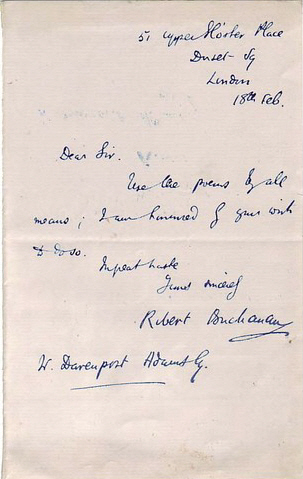 51 Upper Gloster Place
Dorset Sq
London
18th Feb.
Dear Sir.
Use the poems by all
means; I am honoured by your wish
to do so.
In great haste
Yours sincerely
Robert Buchanan
W. Davenport Adams Esq.